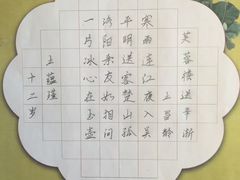 芙蓉楼送辛渐
王昌龄
寒雨连江夜入吴
平明送客楚山孤
洛阳亲友如相问
一片冰心在玉壶
蕴瑾
十二岁